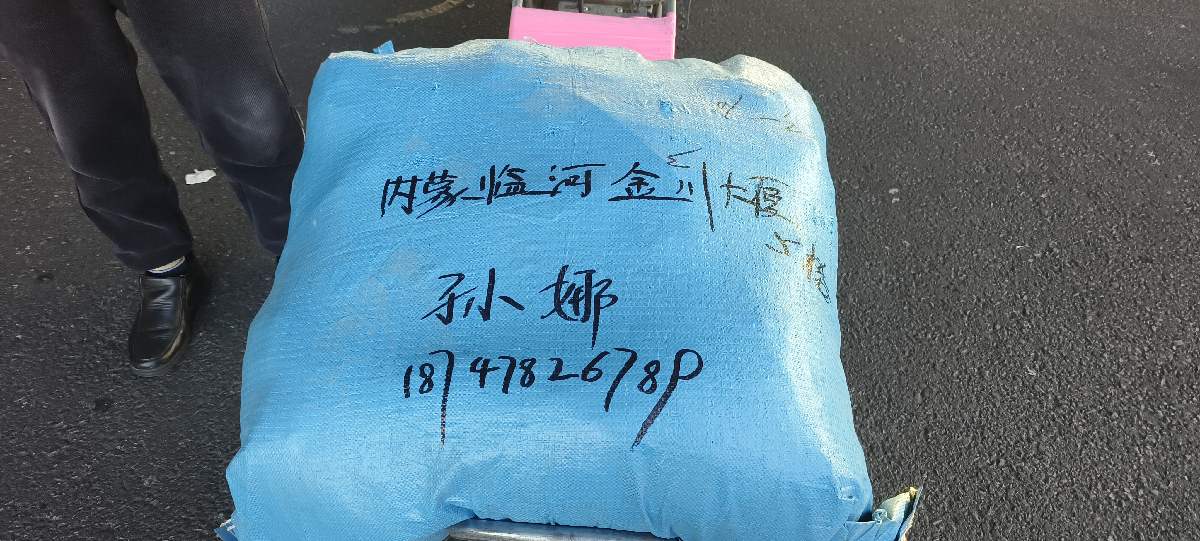 内蒙临河金川大厦
5楼
孙娜
18747826789